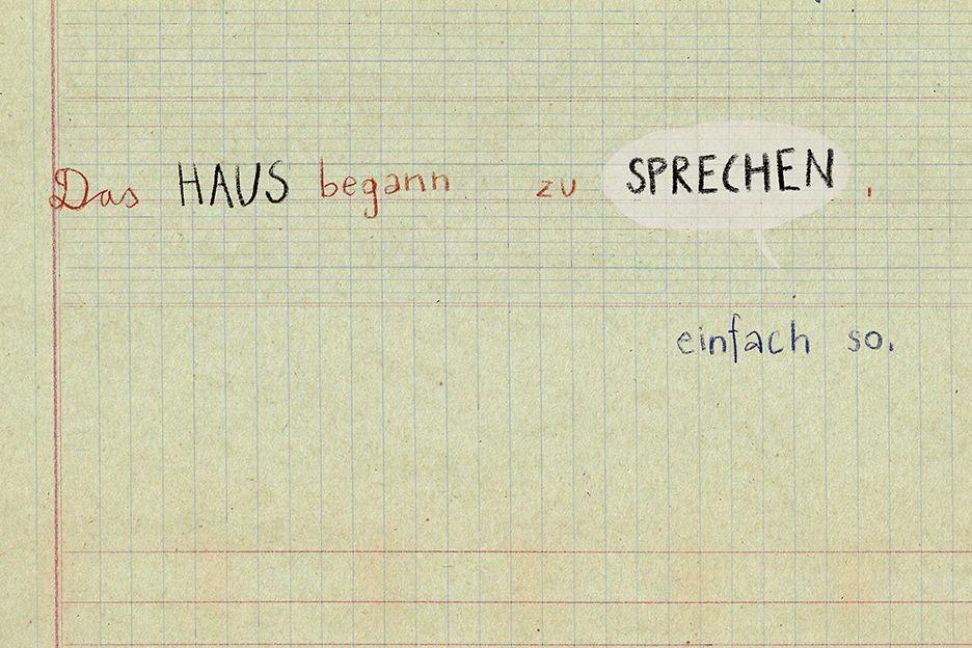 Das HAUS begann zu SPRECHEN,
einfach so.